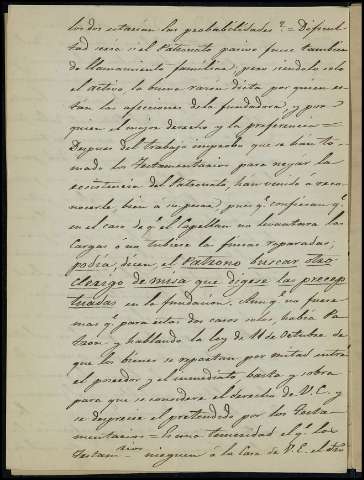 los dos estarian las probabilidades? = Dificul-
tad seria si el Patronato pasivo fuese tambien
de llamamiento familiar, pero siendolo solo
el activo la buena razon dicta por quien es-
tan las afecciones de la fundadora, y por
quien el mejor derecho y la preferencia =
Despues del trabajo improbo que se han to-
mado los Testamentarios para negar la
ecsistencia del Patronato, han venido á reco-
nocerle, bien á su pesar, pues qe confiesan qe
en el caso de qe el Capellan no levantara las
Cargas ó no tubiese las fincas reparadas,
podia, dicen, el Patrono buscar otro
clerigo de misa que digese las precep-
tuadas en la fundacion. Aunqe no fuera
mas qe para estos dos casos solos, habia Pa-
tron y hablando la ley de 11 de Octubre de
que los bienes se repartan por mitad entre
el poseedor y el inmediato basta y sobra
para que se considere el derecho de V.E. y
se desprecie el pretendido por los Testa-
mentarios = Es una temeridad el qe los
Testamentarios nieguen á la Casa de V.E. el